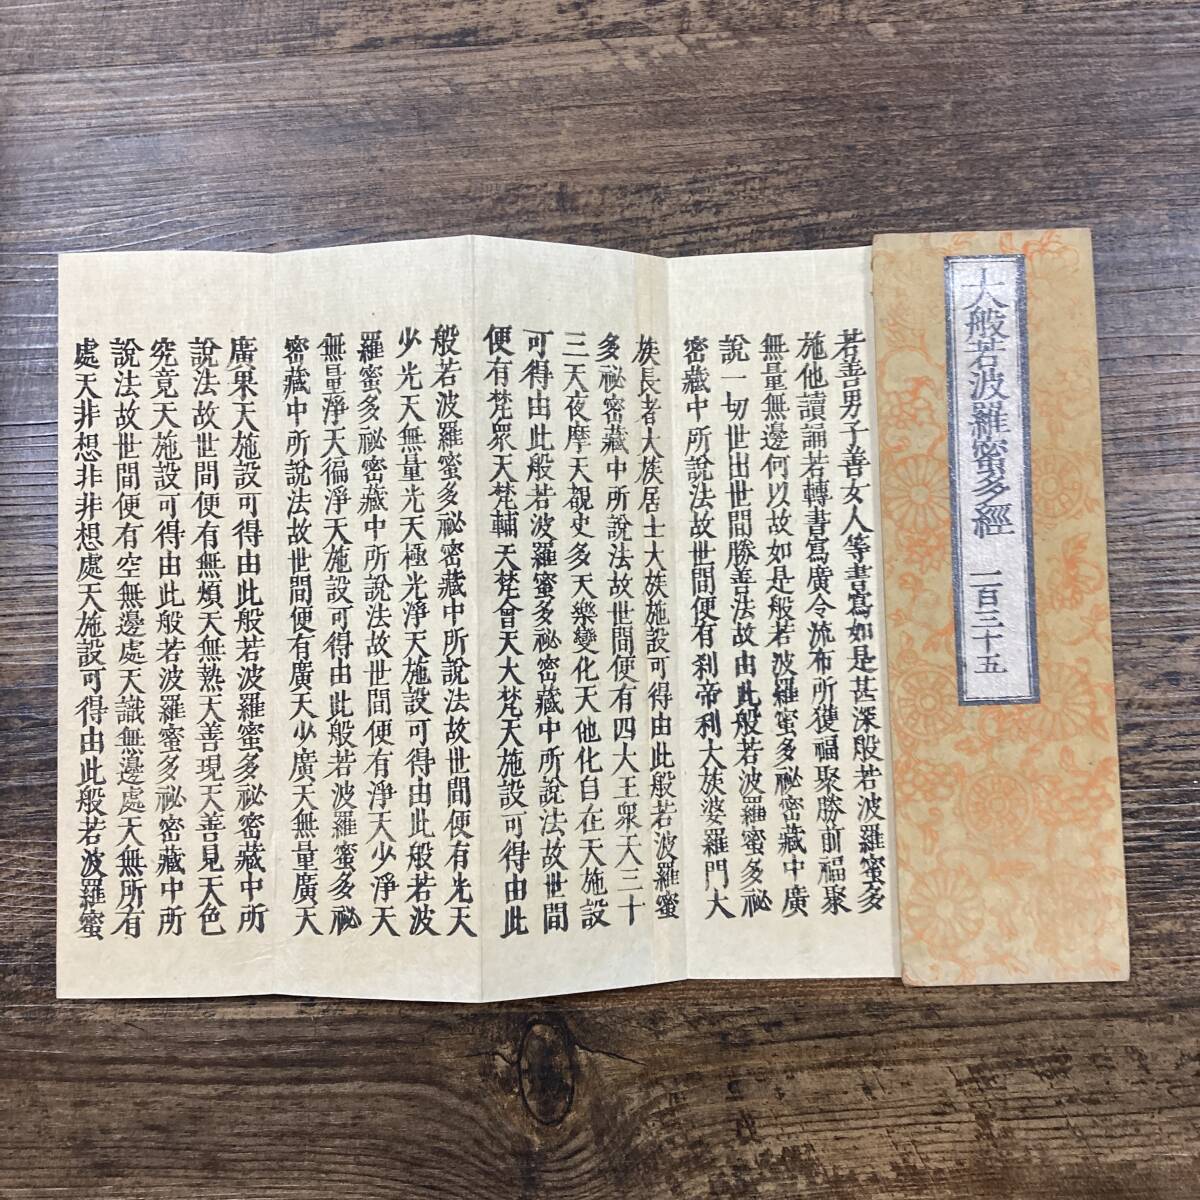 大般若波羅蜜多經 一百三十五
若善男子善女人等書寫如是甚深般若波羅蜜多
施他讀誦若轉書寫廣令流布所獲福聚勝前福聚
無量無邊何以故如是般若波羅蜜多秘密藏中廣
說一切世出世間勝善法故由此般若波羅蜜多祕
密藏中所說法故世間便有刹帝利大族婆羅門大
族長者大族居士大族施設可得由此般若波羅蜜
多祕密藏中所說法故世間便有四大王衆天三十
三天夜摩天覩史多天樂變化天他化自在天施設
可得由此般若波羅蜜多祕密藏中所說法故世間
便有梵眾天梵輔天梵會天大梵天施設可得由此
般若波羅蜜多祕密藏中所說法故世間便有光天
少光天無量光天極光淨天施設可得由此般若波
羅蜜多祕密藏中所說法故世間便有淨天少淨天
無量淨天徧淨天施設可得由此般若波羅蜜多祕
密藏中所說法故世間便有廣天少廣天無量廣天
廣果天施設可得由此般若波羅蜜多祕密藏中所
說法故世間便有無煩天無熱天善現天善見天色
究竟天施設可得由此般若波羅蜜多祕密藏中所
說法故世間便有空無邊處天識無邊處天無所有
處天非想非非想處天施設可得由此般若波羅蜜